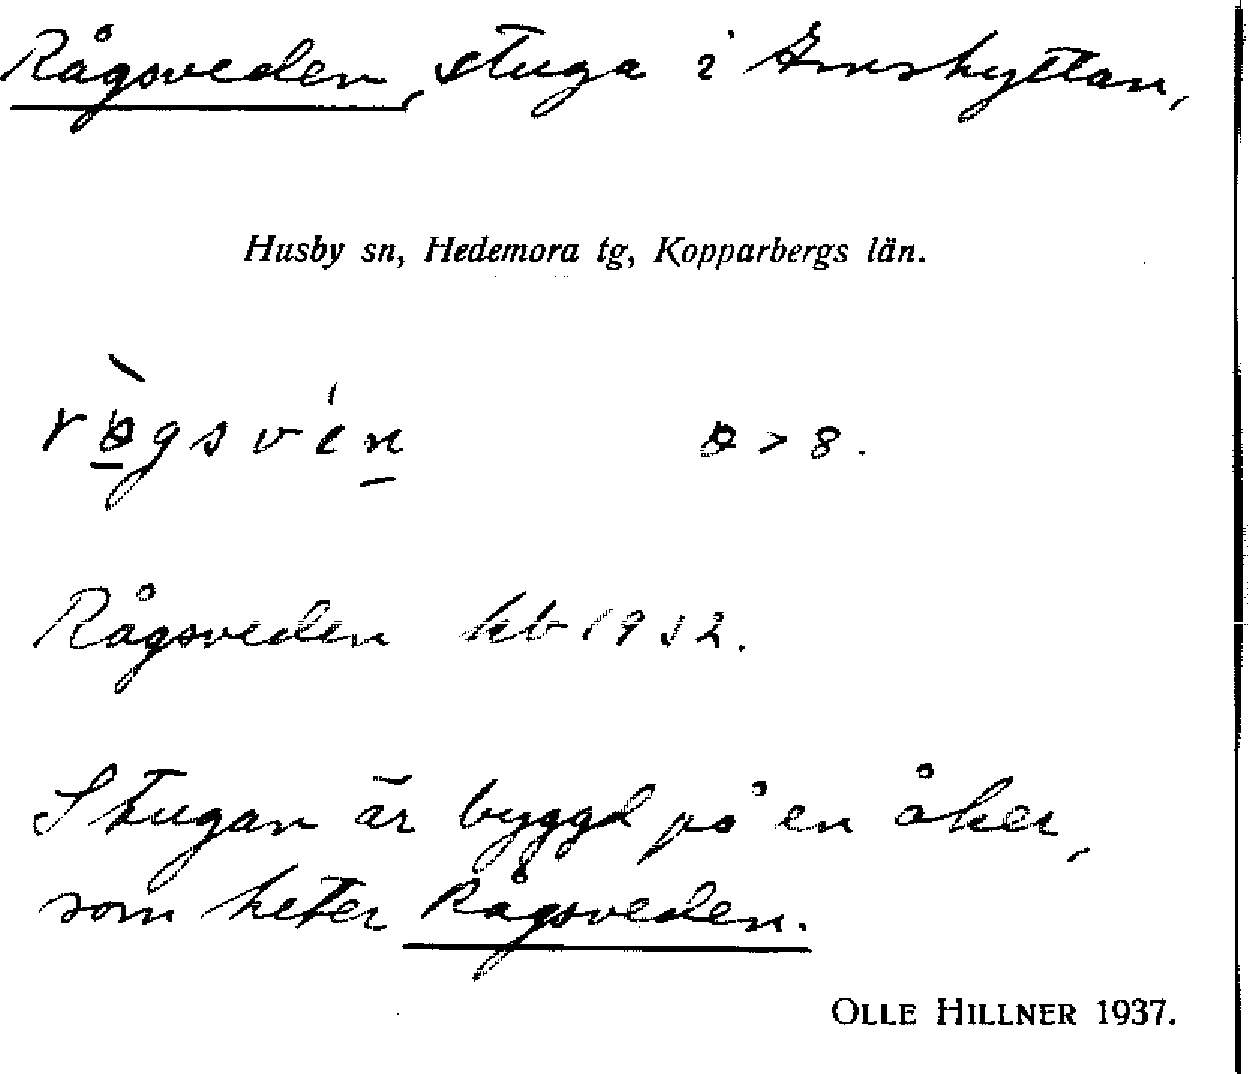 Rågsveden, stuga i Arnshyttan,
Husby sn, Hedemora tg, Kopparbergs län.
Rågsveden kb 1932.
Stugan är byggd på en åker,
som heter Rågsveden.
OLLE HILLNER 1937.